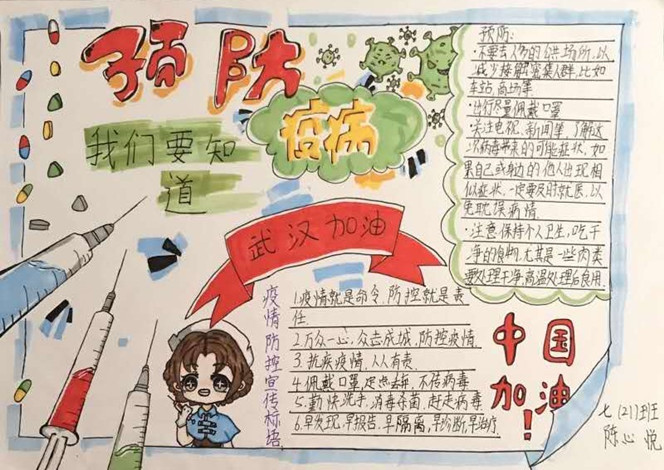 预防
疫病
我们要知
道
预防:
·不要去人多的公共场所,以
减少接触密集人群,比如
车站,商场等
·出行尽量佩戴口罩
·关注电视、新闻等,了解这
次病毒带来的可能症状,如
果自己或身边的他人出现相
似症状,一定要及时就医,以
免耽误病情
·注意保持个人卫生,吃干
净的食物,尤其是一些肉类
要处理干净,高温处理后食用
武汉加油
疫情防控宣传标语
1.疫情就是命令,防控就是责
任.
2.万众一心,众志成城,防控疫情.
3.抗疾疫情,人人有责.
4.佩戴口罩,不传病毒
5.勤快洗手,消毒杀菌,赶走病毒
6.早发现,早报告,早隔离,早诊断,早治疗
中国
加油!
七(21)班
陈心悦